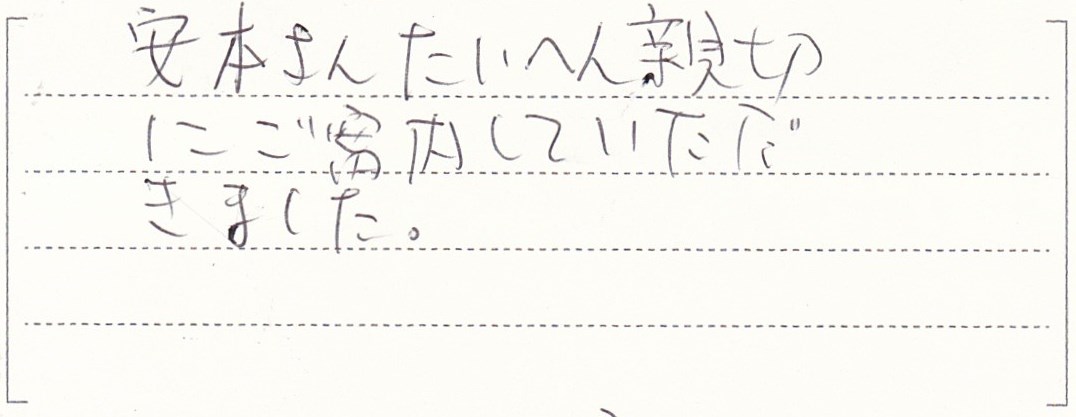 安本さんたいへん親切
にご案内していただ
きました。